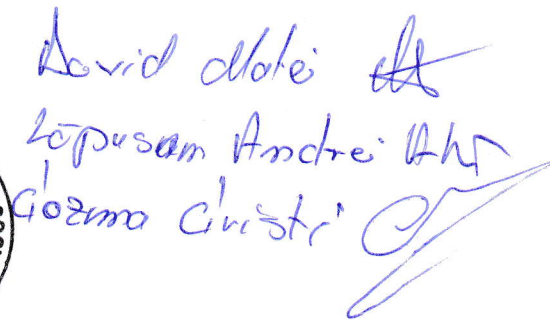 David Matei
Lăpușan Andrei
Cozma Cristi